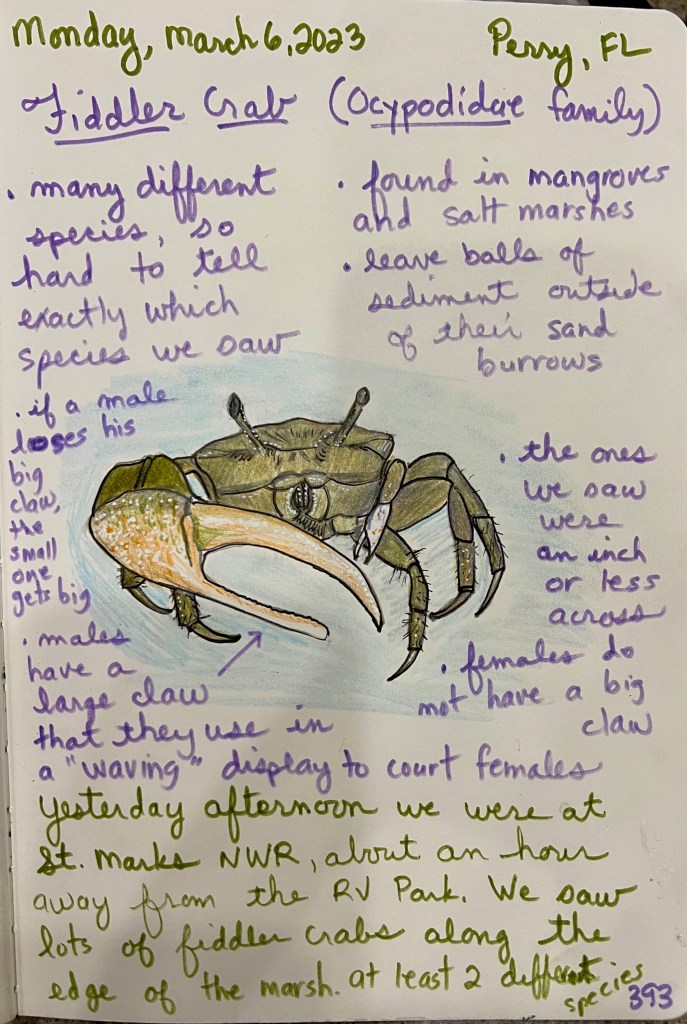 Monday, March 6, 2023
Perry, FL
Fiddler Crab (Ocypodidae family)
. many different
species, so
hard to tell
exactly which
species we saw
. found in mangroves
and salt marshes
. leave balls of
sediment outside
of their sand
burrows
. if a male
loses his
big
claw,
the
small
one
gets big
. the ones
we saw
were
an inch
or less
across
. males
have a
large claw
that they use in
a "waving" display to court females
. females do
not have a big
claw
Yesterday afternoon we were at
St. Marks NWR, about an hour
away from the RV Park. We saw
lots of fiddler crabs along the
edge of the marsh. at least 2 different
species
393